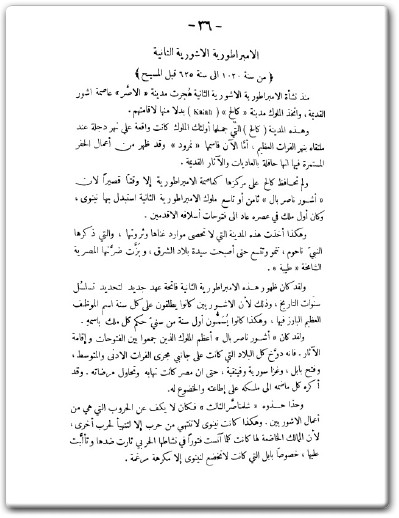 - ٣٦ -
الامبراطورية الاشورية الثانية
﴿ من سنة ١٠٢٠ الى سنة ٦٢٥ قبل المسيح ﴾
منذ نشأة الامبراطورية الاشورية الثانية هُجرت مدينة « الاصّر » عاصمة اشور
القديمة ، واتخذ الملوك مدينة « كالح » ( Kalah ) بدلا منها لاقامتهم .
وهذه المدينة ( كالح ) التي جملها أولئك الملوك كانت واقعة على نهر دجلة عند
ملتقاه بنهر الفرات العظيم . أمّا الآن فاسمها « نمرود » وقد ظهر من أعمال الحفر
المستمرة فيها انها حافلة بالعاديات والآثار القديمة .
ولم تحافظ كالح على مركزها كعاصمة الامبراطورية إلا وقتًا قصيرًا لان
« أشور ناصر بال » ثامن أو تاسع ملوك الامبراطورية الثانية استبدل بها نينوى ،
وكان أول ملك في عصره عاد الى فتوحات أسلافه الاقدمين .
وهكذا أخذت هذه المدينة التي لا تحصى موارد غناها وثروتها ، والتي ذكرها
النبيّ ناحوم ، تنمو وتتسع حتى أصبحت سيدة بلاد الشرق ، وبزّت ضرّتها المصرية
الشامخة « طيبة » .
ولقد كان ظهور هذه الامبراطورية الثانية فاتحة عهد جديد لتحديد تسلسُل
سنوات التاريخ ، وذلك لأن الاشوريين كانوا يطلقون على كل سنة اسم الموظف
العظيم البارز فيها ، وهكذا كانوا يُسَمُّون أولى سنة من سنيّ حكم كل ملك باسمه .
ولقد كان « أشور ناصر بال » أعظم الملوك الذين جمعوا بين الفتوحات وإقامة
الآثار . فانه دوّخ كل البلاد التي كانت على جانبي مجرى الفرات الادنى والمتوسط ،
وفتح بابل ، وغزا سورية وفينيقية ، حتى ان مصر كانت تهابه وتحاول مرضاته . وقد
أكره كل ماضمّه الى ملكه على إطاعته والخضوع له .
وحذا حذوه « شلمناصر الثالث » فكان لا يكف عن الحروب التي هي من
أعمال الاشوريين . وهكذا كانت نينوى لا تنتهي من حرب إلا لتتهيأ لحرب أخرى ،
لأن الممالك الخاضعة لها كانت كلما آنست فتورًا في نشاطها الحربي ثارت ضدها وتألّبت
عليها ، خصوصاً بابل التي كانت لا تخضع لنينوى إلا مكرهة مرغمة .